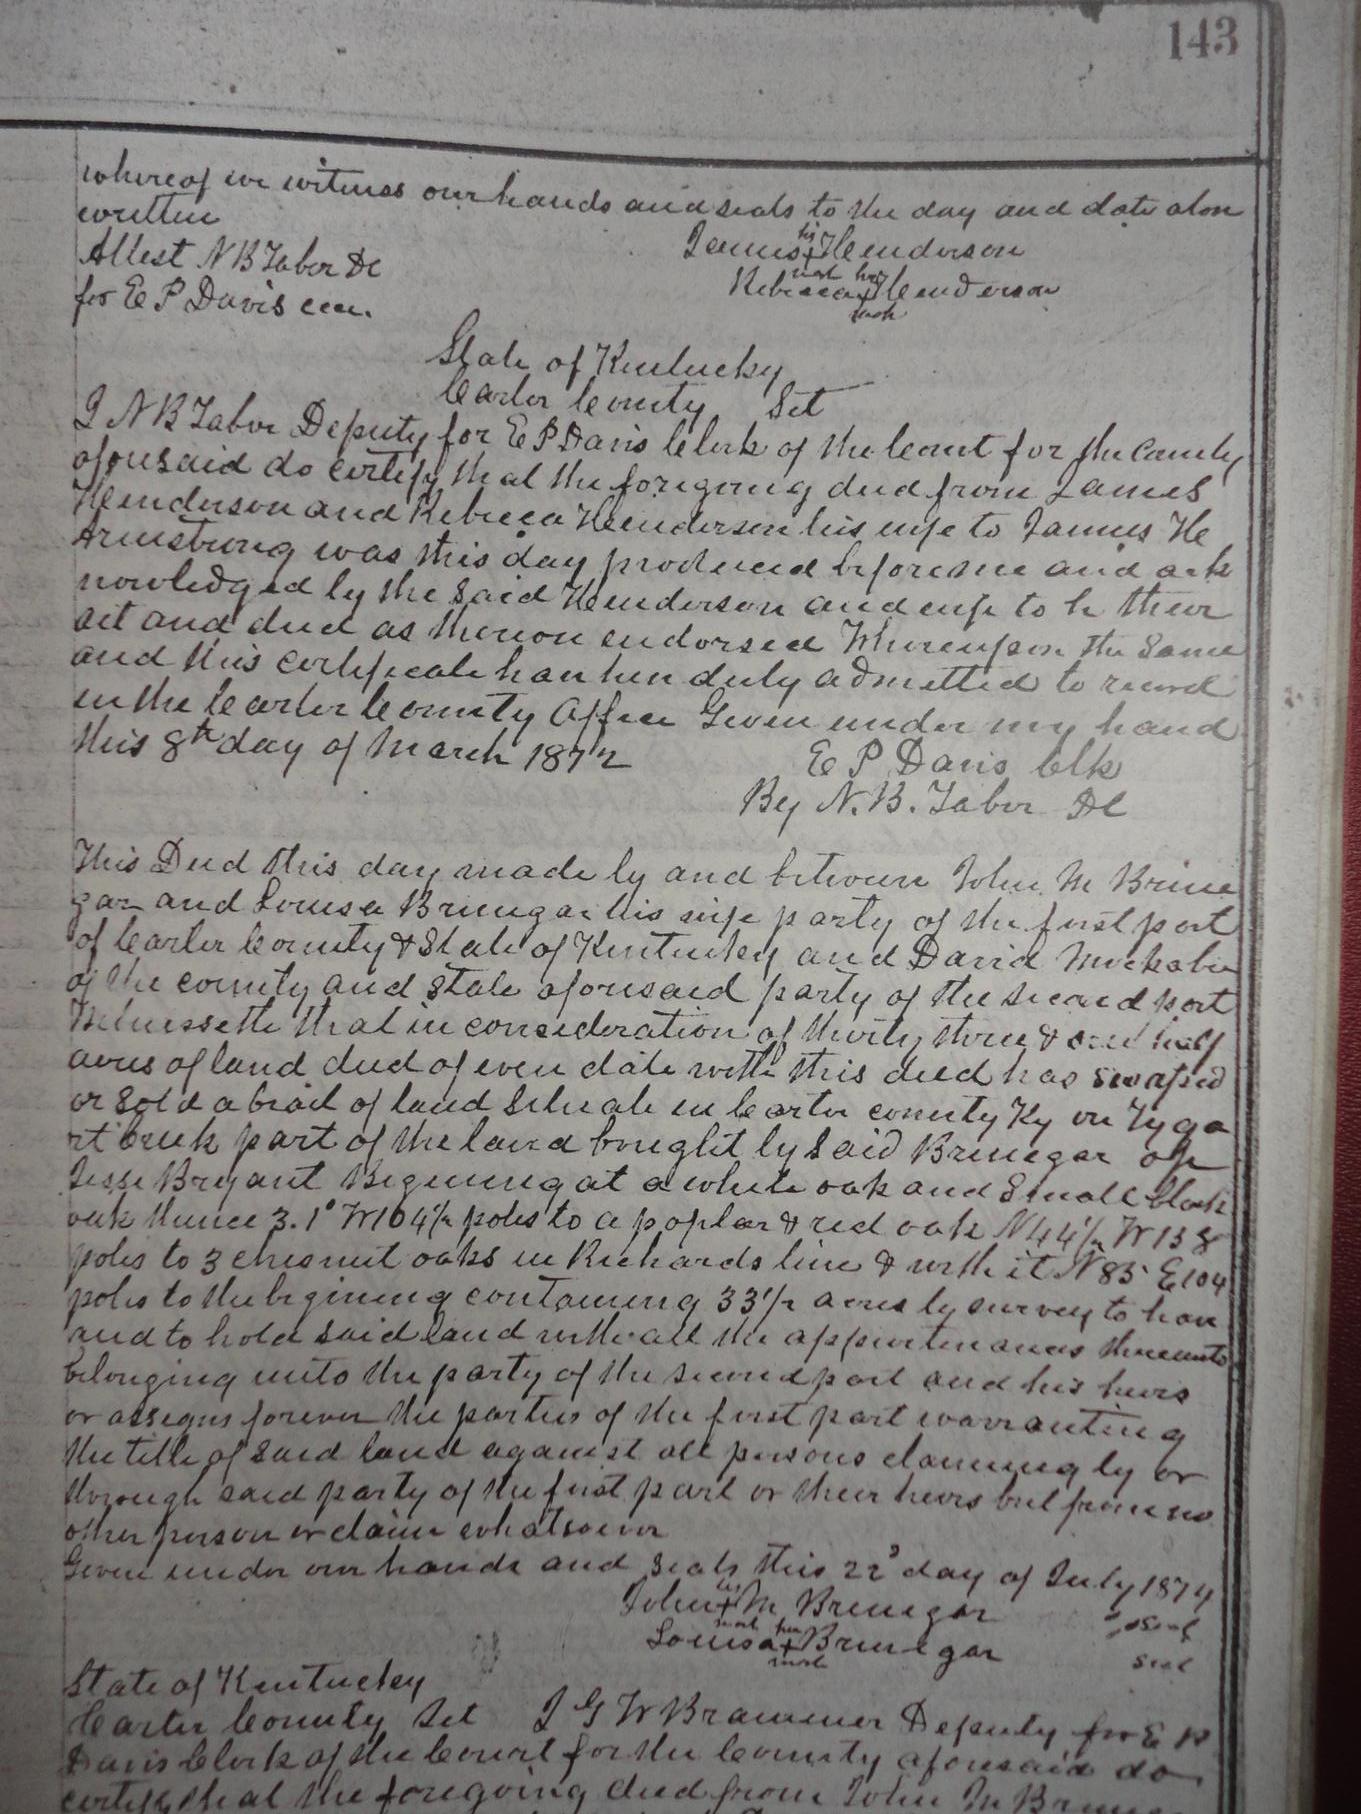 143
whereof we witness our hands and seals to the day and date above
written
James his + Henderson
mark
Attest N B Tabor DC
Rebecca her + Henderson
mark
for E P Davis
State of Kentucky
Carter County Sct
I N B Tabor Deputy for E P Davis Clerk of the Court for the County
aforesaid do certify that the foregoing deed from James
Henderson and Rebecca Henderson his wife to James He
Armstrong was this day produced before me and ack
nowledged by the said Henderson and wife to be their
act and deed as thereon endorsed Whereupon the same
and this certificate have been duly admitted to record
in the Carter County Office Given under my hand
this 8th day of March 1872
E P Davis Clk
By N. B. Tabor DC
This Deed this day made by and between John M Brine
gar and Louisa Brinegar his wife party of the first part
of Carter County & State of Kentucky and David
of the county and state aforesaid party of the second part
Witnesseth that in consideration of thirty three & one half
acres of land deed of even date with this deed has swaped
or sold a of land Situate in Carter county Ky on Tyga
rt creek part of the land bought by said Brinegar of
Jesse Bryant Begining at a white oak and Small black
oak thence 3. 1° W 104 1/2 poles to a poplar & red oak N 44 1/2 W 138
poles to 3 chesnut oaks in Richards line & with it N 85 E 104
poles to the begining containing 33 1/2 acres by survey to have
and to hold said land with all the appurtenances thereunto
belonging unto the party of the second part and his heirs
or assigns forever the parties of the first part warranting
the title of said land against all persons claiming by or
through said party of the first part or their heirs but from no
other person or claim whatsoever
Given under our hands and seals this 22d day of July 187
John his + M Brinegar seal
mark
Louisa her + Brinegar seal
mark
State of Kentucky
Carter County Sct I G W Brammer Deputy for E P
Davis Clerk of the Court for the County aforesaid do
certify that the foregoing deed from John M